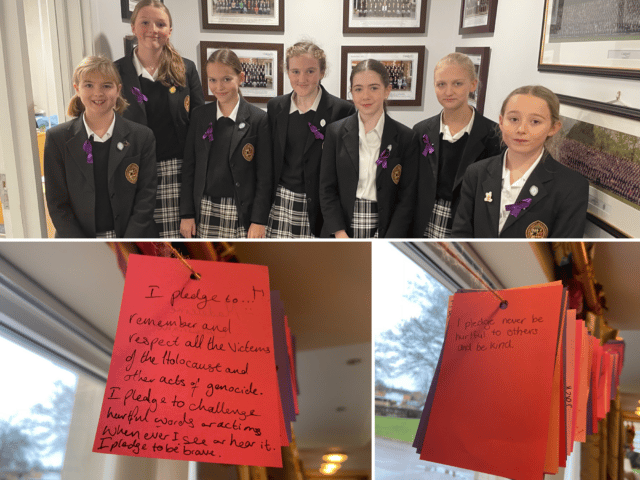 I pledge to...!
remember and
respect all the victims
of the Holocaust and
other acts of genocide.
I pledge to challenge
hurtful words or actions
when ever I see or hear it.
I pledge to be brave.
I pledge never be
hurtful to others
and be kind.